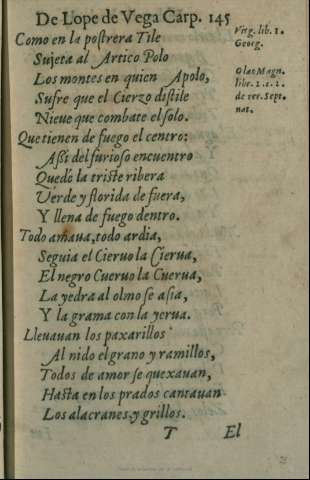 De Lope de Vega Carp. 145
Como en la postrera Tile
Sujeta al Artico Polo
Los montes en quien Apolo,
Sufre que el Cierzo distile
Nieue que combate el solo.
Que tienen de fuego el centro:
Assi del furioso encuentro
Quedè la triste ribera
Verde y florida de fuera,
Y llena de fuego dentro.
Todo amaua, todo ardia,
Seguia el Cieruo la Cierua,
El negro Cueruo la Cuerua,
La yedra al olmo se asia,
Y la grama con la yerua.
Lleuauan los paxarillos
Al nido el grano y ramillos,
Todos de amor se quexauan,
Hasta en los prados cantauan
Los alacranes, y grillos.
T El
Virg. lib. 1.
Georg.
Olao Magn.
libr. 2. c. 2.
de rer. Sept.
nat.